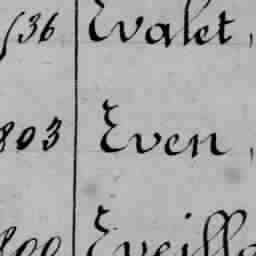 536 Evalet,
803 Even,
800 Eveillé